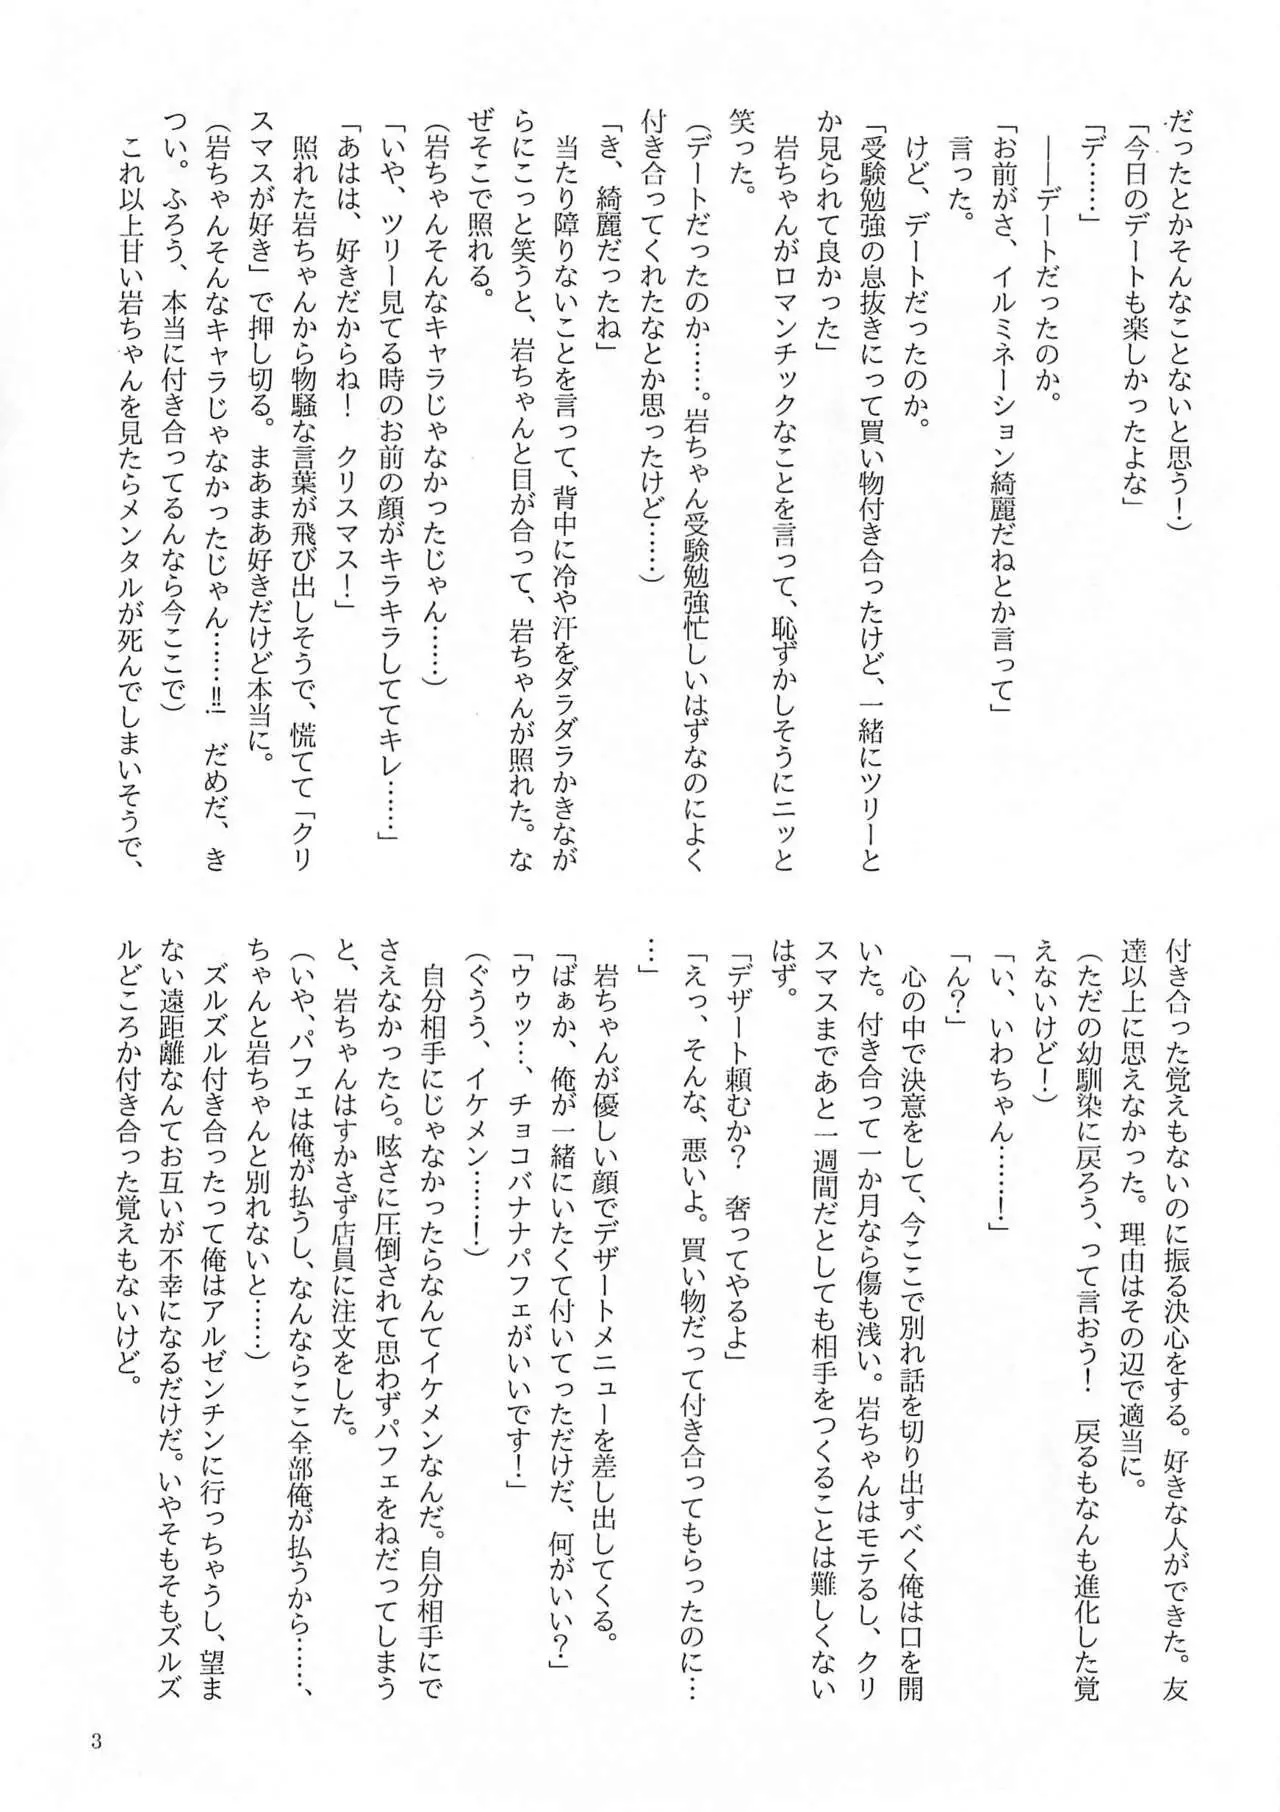 だったとかそんなことないと思う！）
「今日のデートも楽しかったよな」
「デ……」
――デートだったのか。
「お前がさ、イルミネーション綺麗だねとか言って」
言った。
けど、デートだったのか。
「受験勉強の息抜きにって買い物付き合ったけど、一緒にツリーと
か見られて良かった」
岩ちゃんがロマンチックなことを言って、恥ずかしそうにニッと
笑った。
（デートだったのか……。岩ちゃん受験勉強忙しいはずなのによく
付き合ってくれたなとか思ったけど……）
「き、綺麗だったね」
当たり障りないことを言って、背中に冷や汗をダラダラかきなが
らにこっと笑うと、岩ちゃんと目が合って、岩ちゃんが照れた。な
ぜそこで照れる。
（岩ちゃんそんなキャラじゃなかったじゃん……）
「いや、ツリー見てる時のお前の顔がキラキラしててキレ……」
「あはは、好きだからね！　クリスマス！」
照れた岩ちゃんから物騒な言葉が飛び出しそうで、慌てて「クリ
スマスが好き」で押し切る。まあまあ好きだけど本当に。
（岩ちゃんそんなキャラじゃなかったじゃん……!!　だめだ、き
つい。ふろう、本当に付き合ってるんなら今ここで）
これ以上甘い岩ちゃんを見たらメンタルが死んでしまいそうで、
付き合った覚えもないのに振る決心をする。好きな人ができた。友
達以上に思えなかった。理由はその辺で適当に。
（ただの幼馴染に戻ろう、って言おう！　戻るもなんも進化した覚
えないけど！）
「い、いわちゃん……！」
「ん？」
心の中で決意をして、今ここで別れ話を切り出すべく俺は口を開
いた。付き合って一か月なら傷も浅い。岩ちゃんはモテるし、クリ
スマスまであと一週間だとしても相手をつくることは難しくない
はず。
「デザート頼むか？　奢ってやるよ」
「えっ、そんな、悪いよ。買い物だって付き合ってもらったのに…
…」
岩ちゃんが優しい顔でデザートメニューを差し出してくる。
「ばぁか、俺が一緒にいたくて付いてっただけだ、何がいい？」
「ウゥッ…、チョコバナナパフェがいいです！」
（ぐうう、イケメン……！）
自分相手にじゃなかったらなんてイケメンなんだ。自分相手にで
さえなかったら。眩さに圧倒されて思わずパフェをねだってしまう
と、岩ちゃんはすかさず店員に注文をした。
（いや、パフェは俺が払うし、なんならここ全部俺が払うから……、
ちゃんと岩ちゃんと別れないと……）
ズルズル付き合ったって俺はアルゼンチンに行っちゃうし、望ま
ない遠距離なんてお互いが不幸になるだけだ。いやそもそもズルズ
ルどころか付き合った覚えもないけど。
3